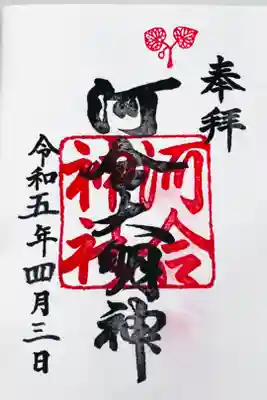 奉拝
河合大明神
河合神社
令和五年四月三日